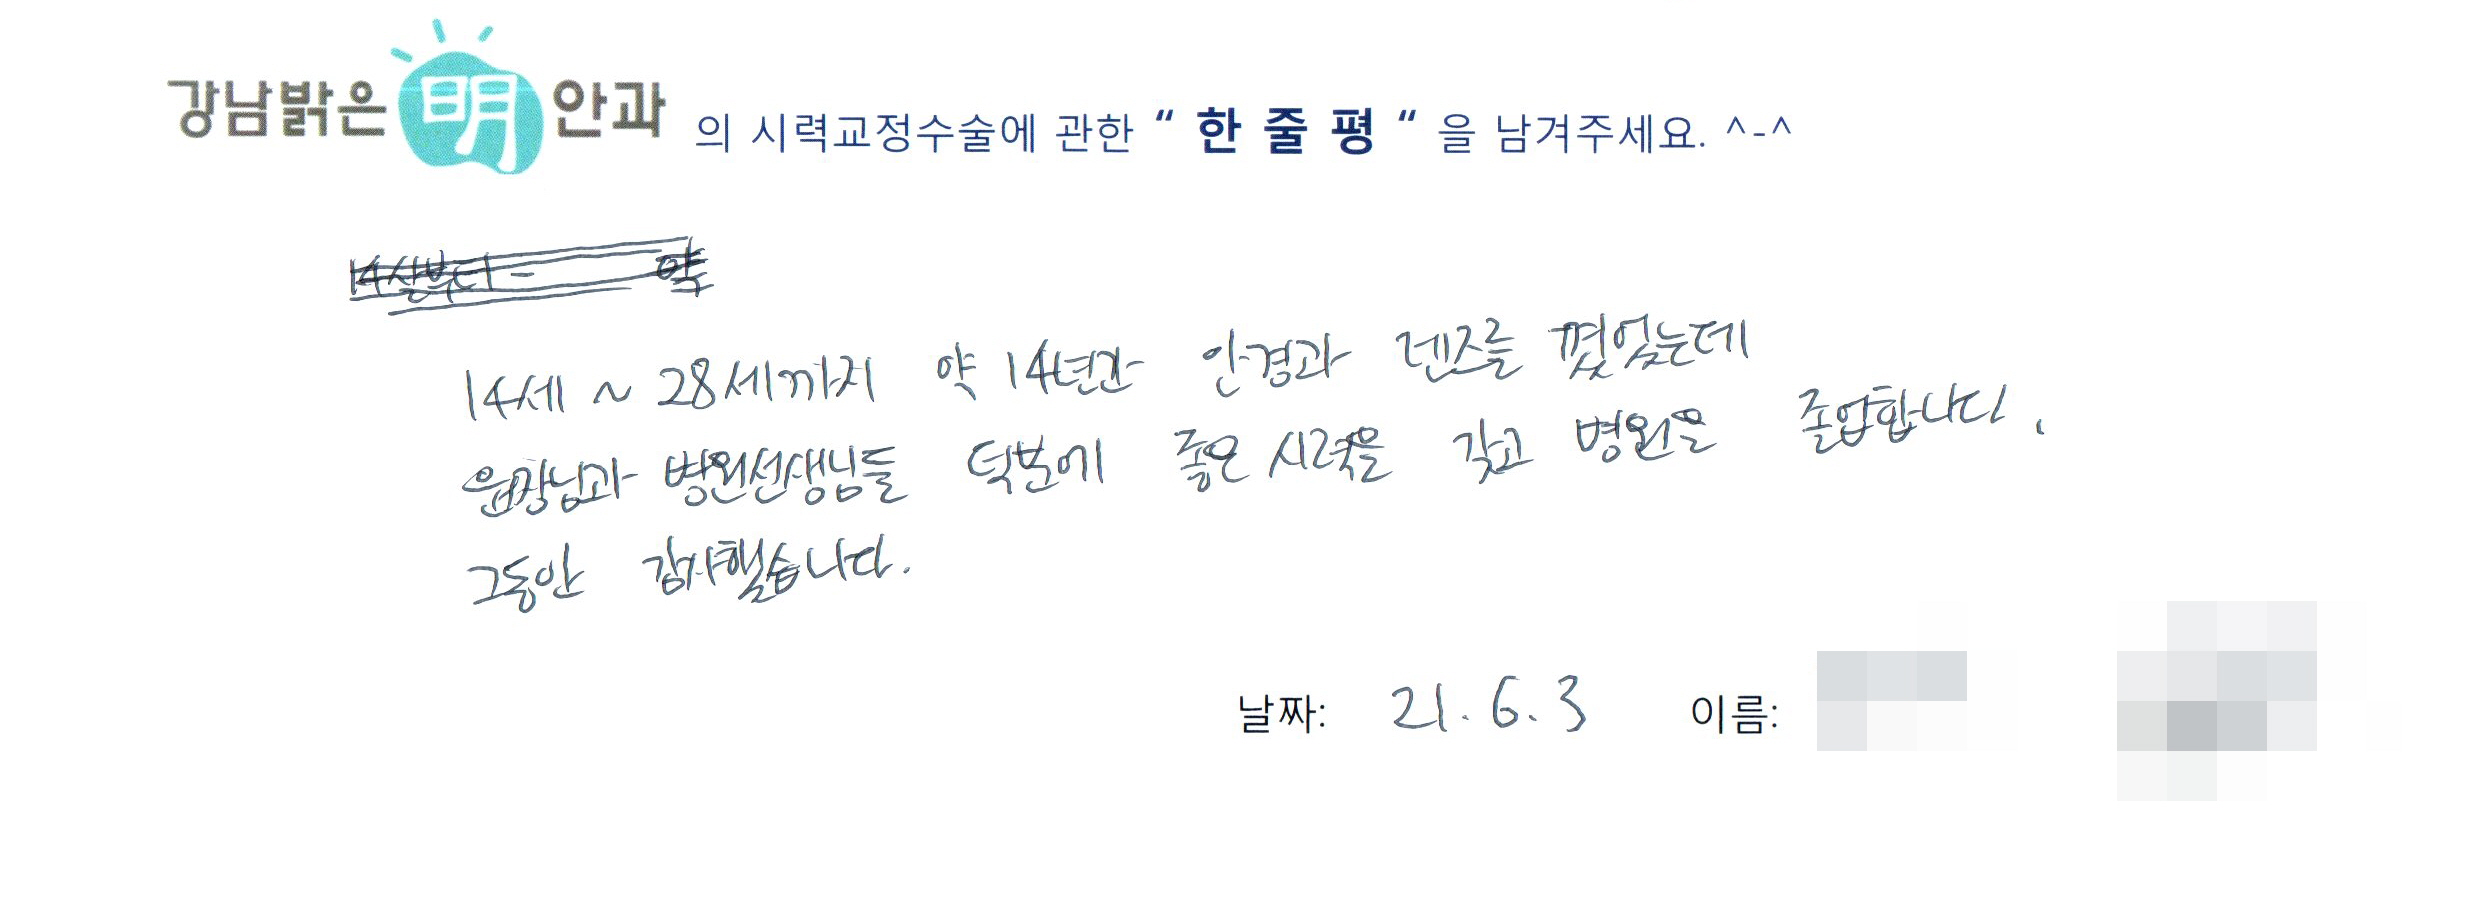 강남밝은明안과 의 시력교정수술에 관한 “ 한 줄 평 “ 을 남겨주세요. ^-^
14살부터 - 약
14세 ~ 28세까지 약 14년간 안경과 렌즈를 꼈었는데
원장님과 병원선생님들 덕분에 좋은 시력을 갖고 병원을 졸업합니다.
그동안 감사했습니다.
날짜: 21. 6. 3 이름: